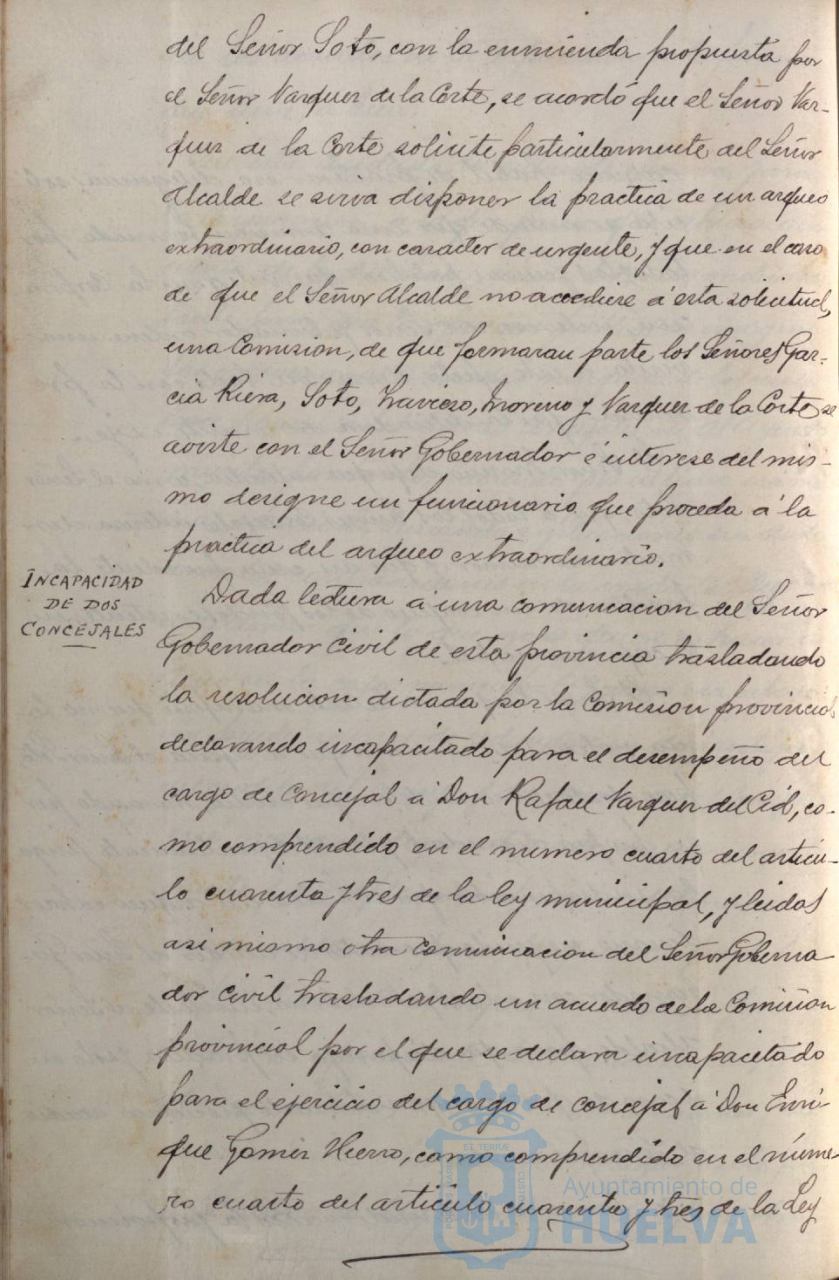 del Señor Soto, con la enmienda propuesta por
el Señor Vazquez de la Corte, se acordó que el Señor Vaz-
quez de la Corte solicite particularmente del Señor
Alcalde se sirva disponer la practica de un arqueo
extraordinario, con caracter de urgente, y que en el caso
de que el Señor Alcalde no accediese á esta solicitud,
una Comision, de que formaran parte los Señores Gar-
cia Riera, Soto, Travieso, Moreno y Vazquez de la Corte se
aviste con el Señor Gobernador é interese del mis-
mo designe un funcionario que proceda á la
practica del arqueo extraordinario.
INCAPACIDAD
DE DOS
CONCEJALES
Dada lectura á una comunicacion del Señor
Gobernador Civil de esta provincia trasladando
la resolucion dictada por la Comision provincial
declarando incapacitado para el desempeño del
cargo de Concejal á Don Rafael Vazquez del Cid, co-
mo comprendido en el numero cuarto del articu-
lo cuarenta y tres de la ley municipal, y leidas
asi mismo otra comunicacion del Señor Goberna
dor Civil trasladando un acuerdo de la Comision
provincial por el que se declara incapacitado
para el ejercicio del cargo de concejal á Don Enri
que Gomez Hierro, como comprendido en el núme-
ro cuarto del articulo cuarenta y tres de la Ley
Ayuntamiento de
HUELVA